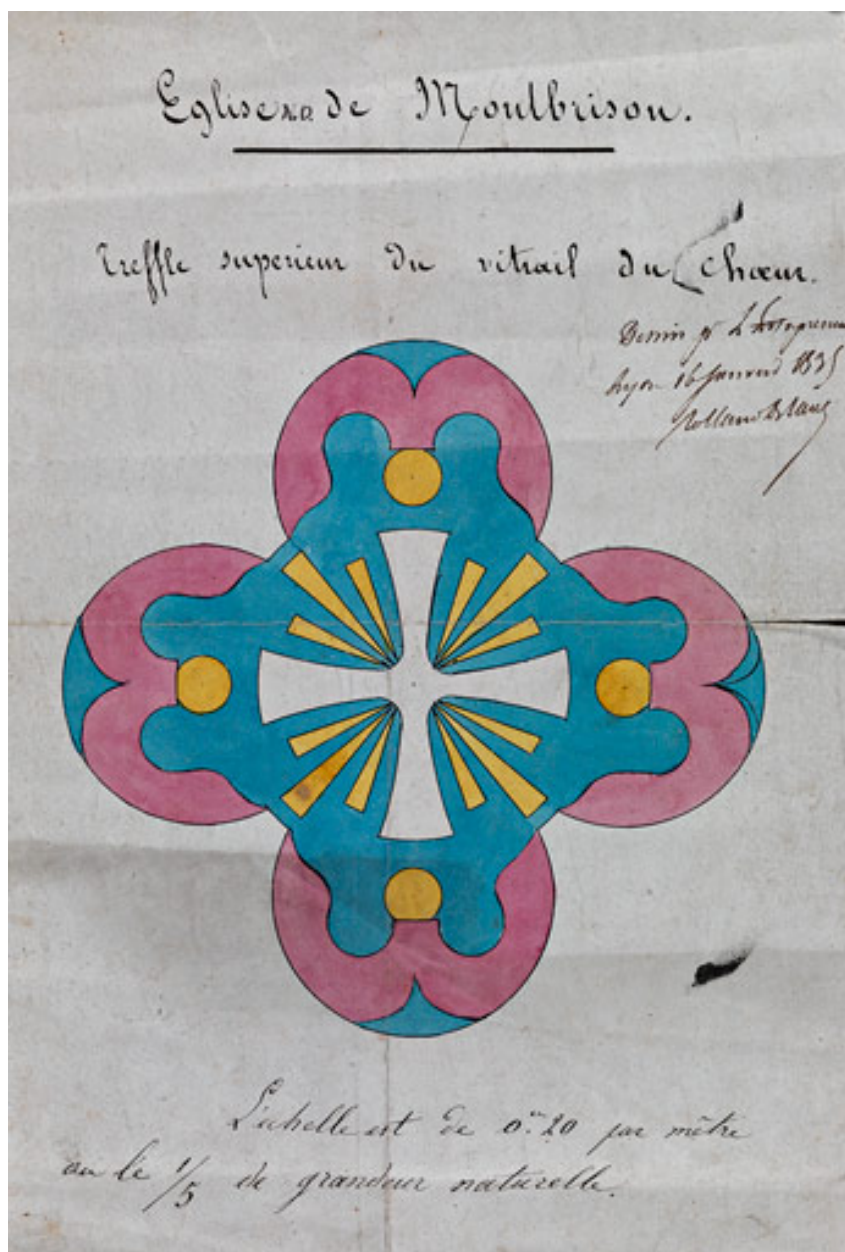 Eglise N.D. de Montbrison.
Treffle superieur du vitrail du Chœur.
Dessin pr L'Entrepreneur
Lyon 16 Janvier 1835
L'echelle est de 0.m 20 par mètre
ou le 1/5 de grandeur naturelle.